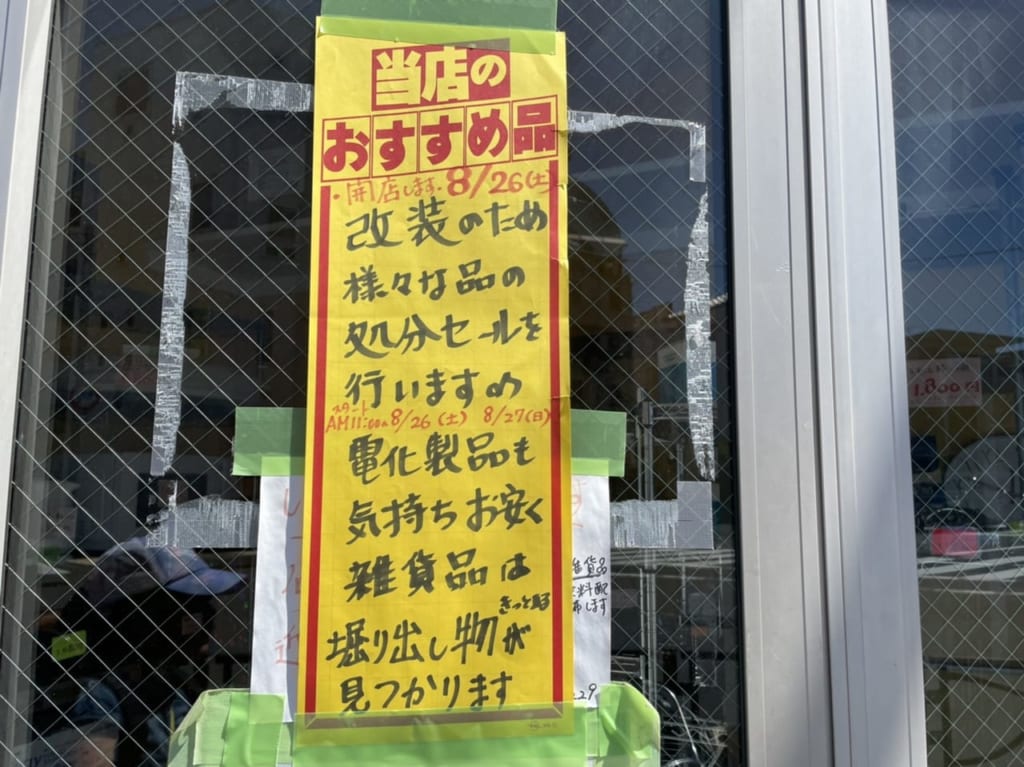 当店の
おすすめ品
・開店します。8/26(土)
改装のため
様々な品の
処分セールを
行いますめ
スタート
AM11:00~8/26(土) 8/27(日)
電化製品も
気持ちお安く
雑貨品は
きっと
掘り出し物が
見つかります
雑貨品
料配
布します